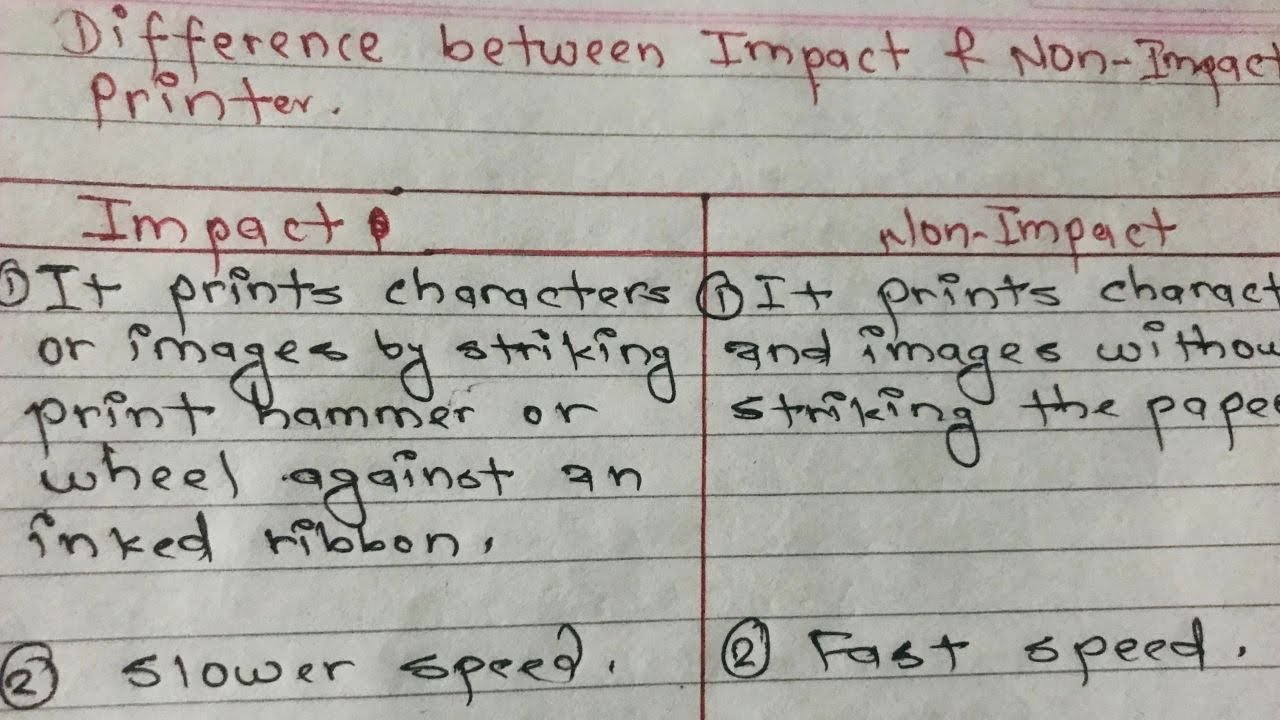 Difference between Impact & Non-Impact
Printer.
Impact
Non-Impact
① It prints characters
or images by striking
print hammer or
wheel against an
inked ribbon.
② Slower speed.
① It prints charact
and images withou
striking the pape
② Fast speed.